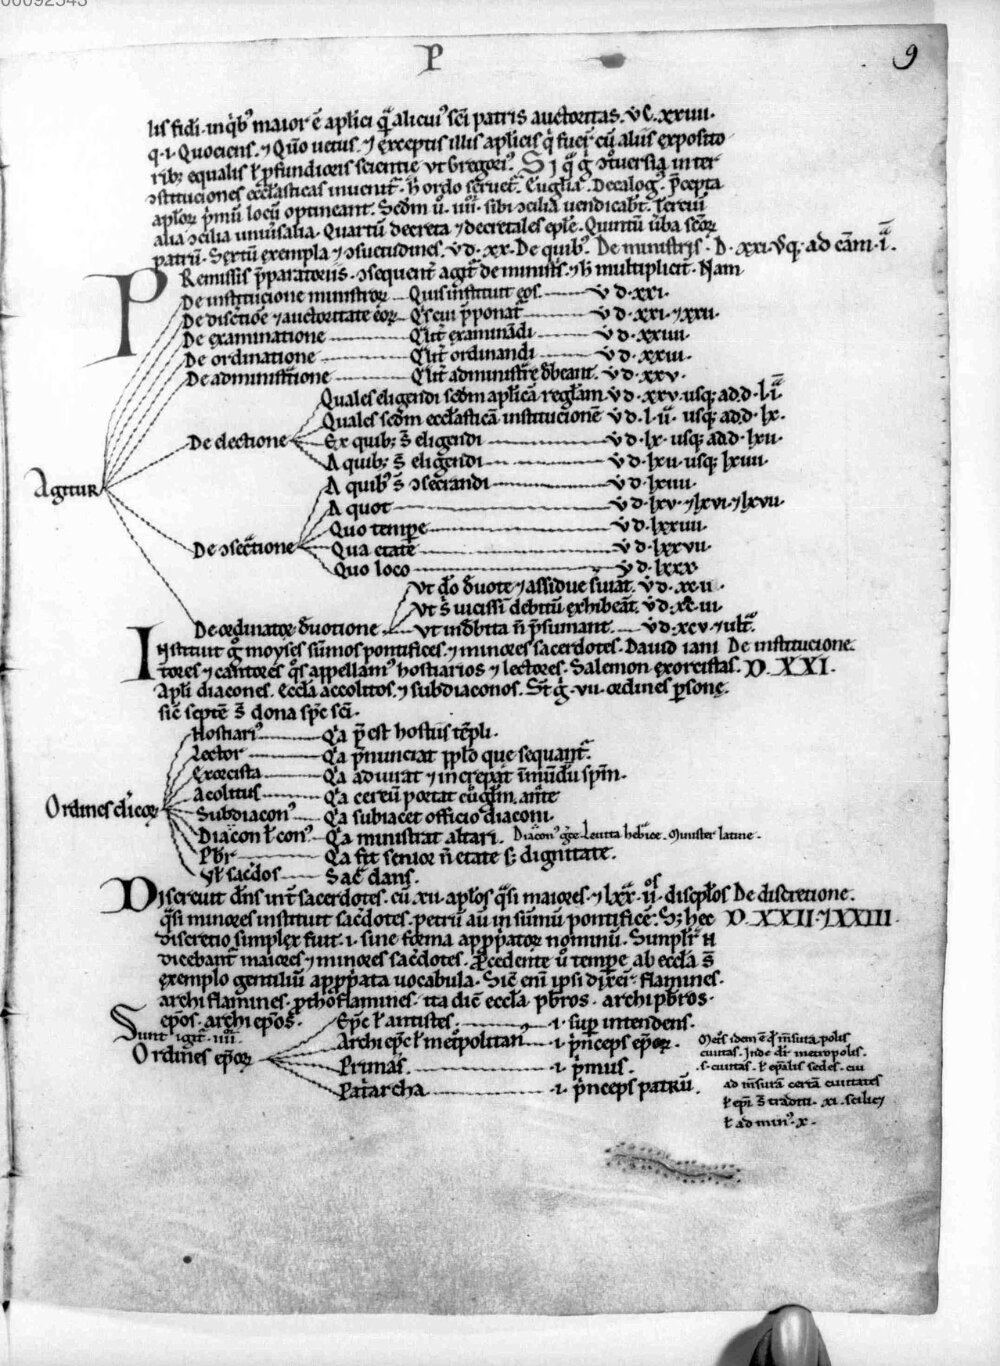 00092343
P
9
lis fidi. in q̇b᷒ maior ē aplici q̄ alicui᷒ sc̄i patris auctoritas. v̇ C. xxiiii.
q. i. Quociens. ⁊ Qūo uetus. ⁊ exceptis illis aplicis q̇ fuer̄ cū aliis exposito
ribꝫ equalis ł ꝓfundioris scientie vt Gregori᷒. Si q̄ ḡ ↄtuersia inter
ↄstituciones eccłasticas inuenit᷑. h̄ ordo seruet᷑. Euglia. Decalog. p̄cepta
apłoꝝ p̄mū locū optineant. Scdm ū. iiii. sibi ↄcilia uendicab̄t. Terciū
alia ↄcilia uniūsalia. Quartū decreta ⁊ decretales epłe. Quintū ūba sc̄oꝝ
patrū. Sextū exempla ⁊ ↄsuetudines. v̇ d. xx. De quib᷒. De ministris. D. xxi. v̇sqꝫ ad cām. i.
PRemissis p̄paratoriis. ↄsequent᷑ agit᷑ de ministris ⁊ h̄ multiplicit᷑. Nam
De institucione ministroꝝ Quis instituit eos. v̇ d. xxi.
De discr̄tioe ⁊ auctoritate eoꝝ Q's cui p̄ponat᷑ v̇ d. xxi. ⁊ xxii.
De examinatione Q'lit᷑ examinādi v̇ d. xxiiii.
De ordinatione Q'lit᷑ ordinandi v̇ d. xxiii.
De administr̄tione Q'lit᷑ administr̄e d̄beant. v̇ d. xxv.
Quales eligendi scdm aplicā regłam v̇ d. xxv. usqꝫ ad d. l. i.
Quales scdm eccłasticā institucionē v̇ d. l. ii. usqꝫ ad d. lx.
De electione Ex quibꝫ s̄ eligendi v̇ d. lx. usqꝫ ad d. lxii.
A quibꝫ s̄ eligendi v̇ d. lxii. usqꝫ lxiii.
Agitur
A quib᷒ s̄ ↄsecrandi v̇ d. lxiiii.
A quot v̇ d. lxv. ⁊ lxvi. ⁊ lxvii.
Quo temp̱e v̇ d. lxxiiii.
De ↄsecr̄tione Qua etate v̇ d. lxxvii.
Quo loco v̇ d. lxxx
Vt d̄o d̄uote ⁊ assidue ẛuiāt. v̇ d. xc ii.
Vt s̄ uicissī debitū exhibeāt. v̇ d. xc iii
De ordinatoꝝ d̄uotione vt indbita ñ p̄sumant. v̇ d. xcv. ⁊ ult̄.
INstituit g̊ moyses sūmos pontifices. ⁊ minores sacerdotes. Dauid iani De institucione.
tores ⁊ cantores q̊s appellam᷒ hostiarios ⁊ lectores. Salemon exorcistas. D. XXI.
Apłi diacones. Eccła accolitos. ⁊ subdiaconos. St̄ ḡ. vii. ordines ꝑsonę.
sic̄ septē s̄ dona sp̄c sc̄i.
Hostiari᷒ Q'a p̄est hostiis tēpli.
Lector Q'a p̄nunciat ppłō que sequant᷑.
Exorcista Q'a adiurat ⁊ increpat īmūdū sp̄m.
Acolitus Q'a cereū portat euglm. ante
Ordines clicoꝝ Subdiacon᷒ Q'a subiacet officio diaconi.
Diacon ł con᷒ Q'a ministrat altari. Diacon᷒ gr̄ce. Leuita hebraice. Minister latine.
Pbr Q'a fit senior ñ etate sꝫ dignitate.
Vł sac̄dos Sac̄ dans.
DIscreuit dn̄s int᷑ sacerdotes. cū. xii. apłos q̄si maiores. ⁊ lxx. ii᷒os. discipłos De discretione.
q̄si minores instituit sac̄dotes. petrū aū in sūmū pontificē. Sꝫ hec D. XXII. ⁊ XXIII.
discretio simplex fuit. i. sine forma app̱p̄iatoꝝ nominū. Simplr̄ .N.
dicebant᷑ maiores ⁊ minores sac̄dotes. Ꝓcedente ū temp̱e ab eccła s̄
exemplo gentiliū app̱p̄ata uocabula. Sic̄ eni ipsi dixer̄. flamines.
archi flamines. ꝓthoflamines. ita dic̄ eccła pb̄ros. archipb̄ros.
ep̄os. archi ep̄os.
Sunt igit᷑ iiii. Ep̄c ł antistes. i. suꝑ intendens.
Ordines ep̄oꝝ Archi ep̄c ł met̄politan i. p̄nceps ep̄oꝝ.
Primas. i. p̄mus.
Pat̄archa i. p̄nceps patrū.
Metros idem ē ł m̄sura. polis
ciuitas. Inde dr̄ metropolis.
.s. ciuitas. ł ep̄alis sedes. cui
ad m̄surā certā ciuitates
ł ep̄i s̄ traditi. xi. scilicꝫ
ł ad min᷒. x.